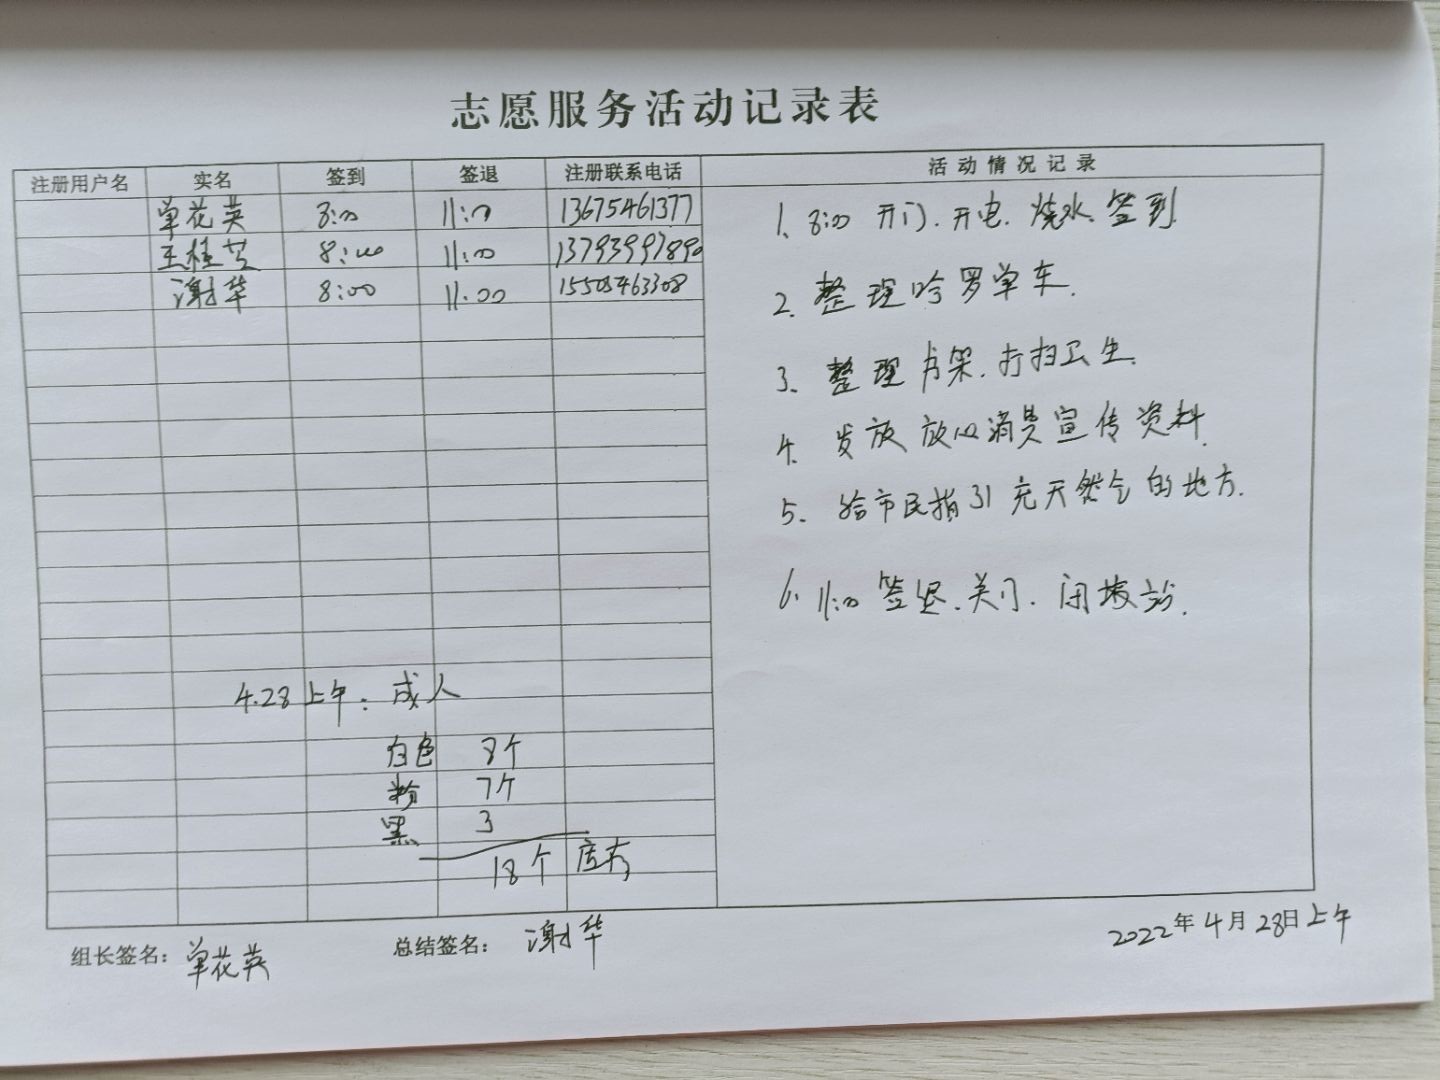 志愿服务活动记录表
注册用户名 实名 签到 签退 注册联系电话 活动情况记录
单花英 8:00 11:00 13675461377
王桂芝 8:00 11:00 13793997890
谢华 8:00 11:00 15505463308
1. 8:00 开门、开电、烧水、签到
2. 整理哈罗单车.
3. 整理书架.打扫卫生.
4. 发放放心消费宣传资料.
5. 给市民指引充天然气的地方.
6. 11:00 签退.关门.闭坡站.
4.28上午:成人
白色 8个
粉 7个
黑 3
18个 库存
组长签名:单花英 总结签名:谢华 2022年4月28日上午